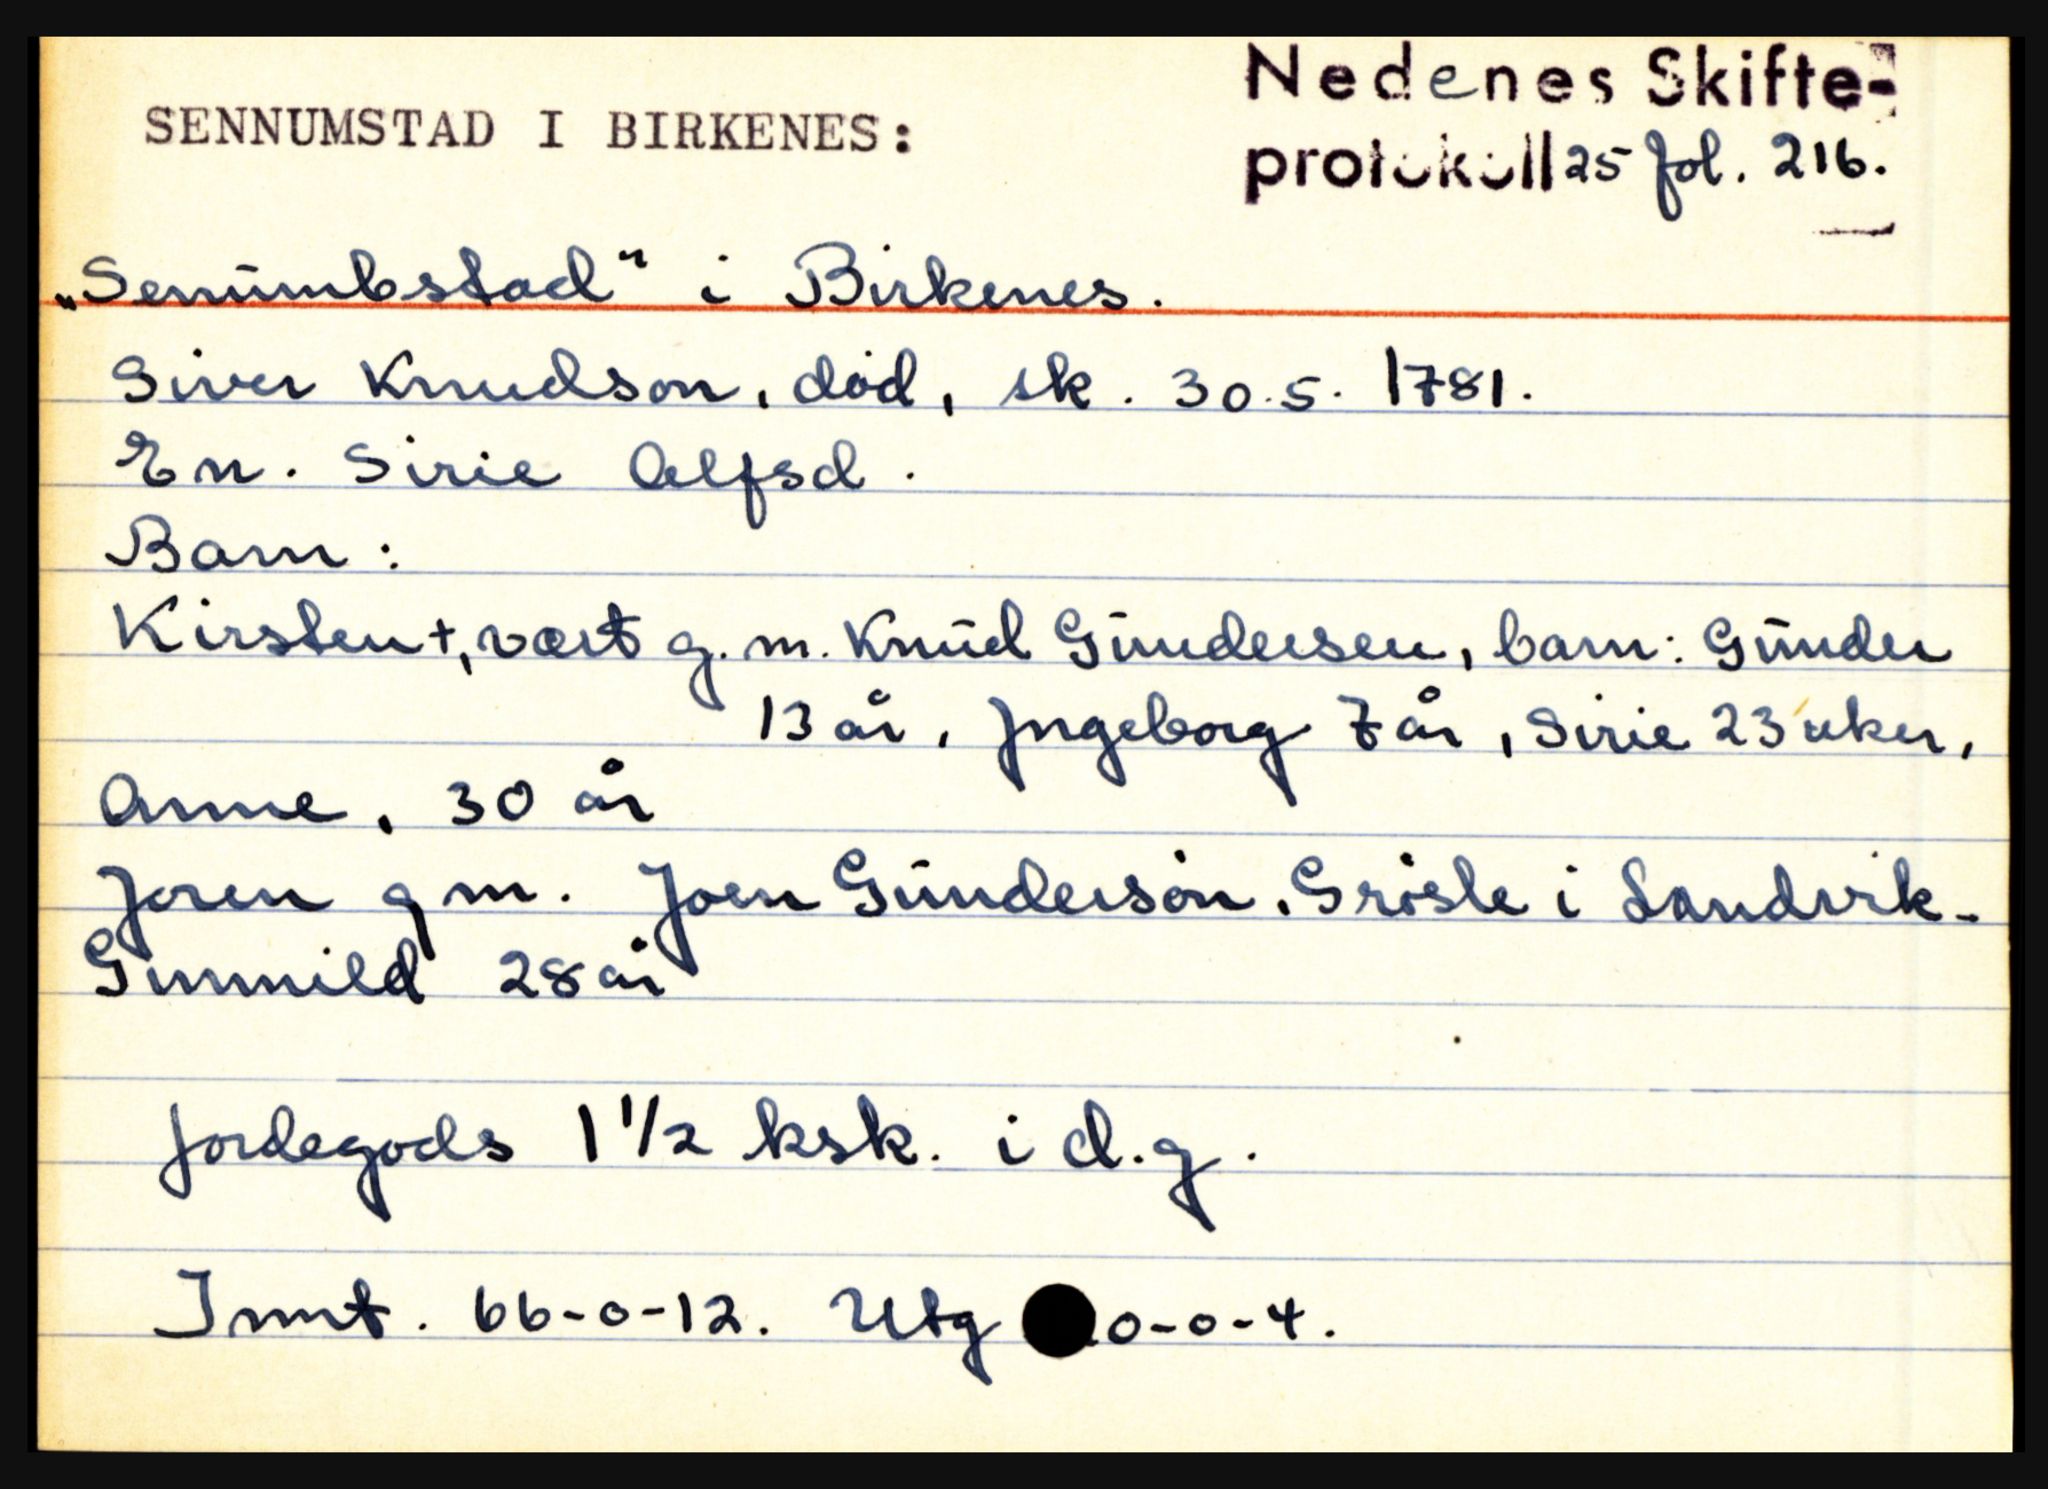 Nedenes Skifte-
SENNUMSTAD I BIRKENES:
protokoll 25 fol. 216.
„Sennumbstad" i Birkenes.
Siver Knudson, død, sk. 30.5. 1781.
En. Sirie Alfsd.
Barn:
Kirsten +, vært g. m. Knud Gundersen, barn: Gunder
13 år, Jngeborg 7 år, Sirie 23 uker,
Anne, 30 år
Joren g m. Joen Gundersøn, Grøsle i Landvik-
Gunnild 28 år
Jordegods 1 1/2 ksk. i d.g.
Innt. 66-0-12. Utg 0-0-4.